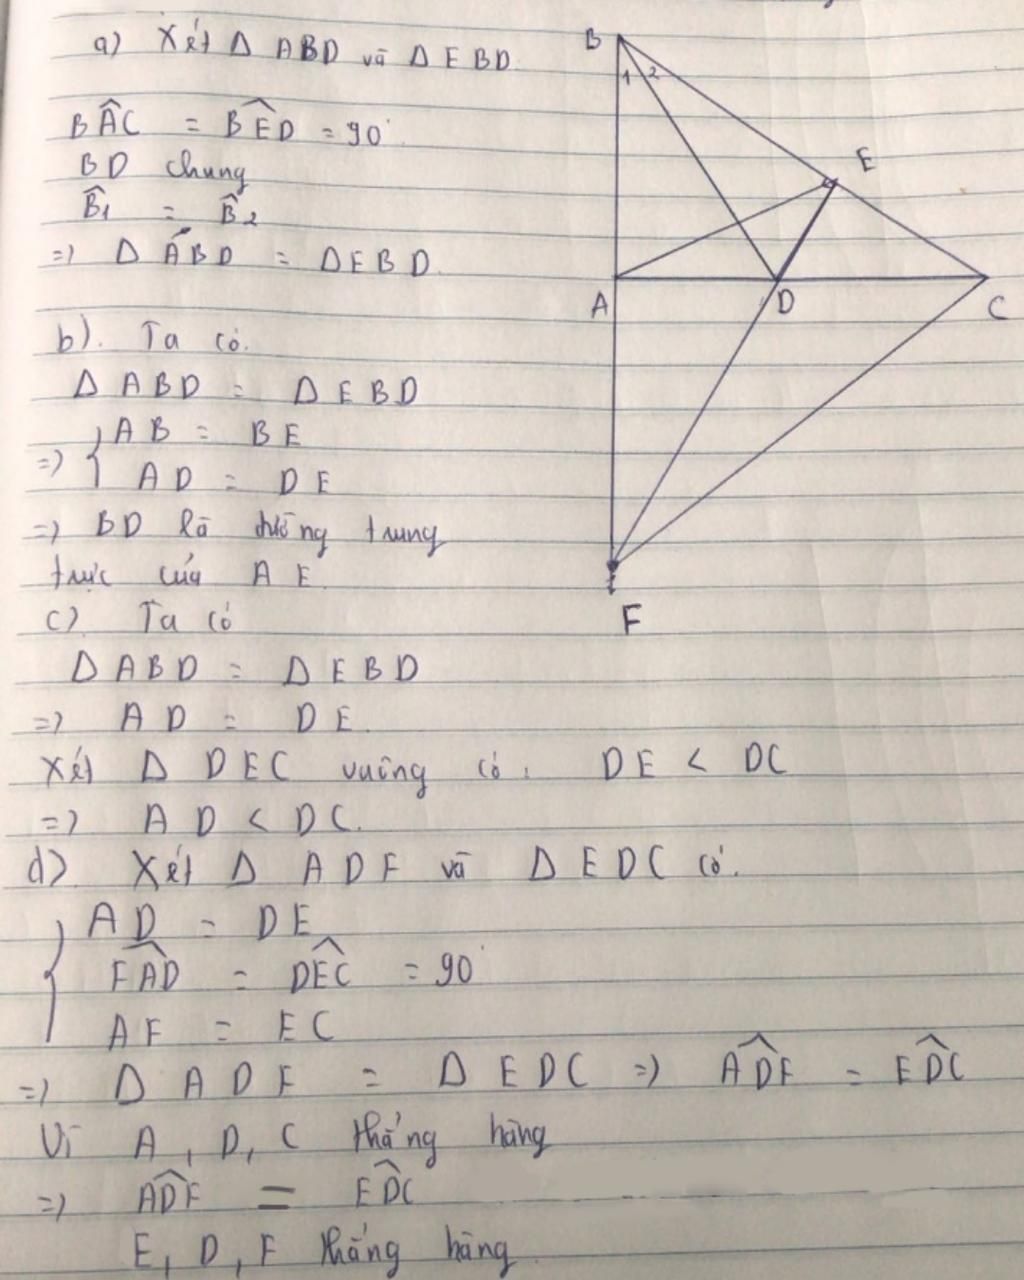 a) Xét Δ ABD và Δ EBD.
BÂC = BÊD = 90°
BD chung
B̂1 = B̂2
=> Δ ABD = Δ EBD.
b). Ta có.
Δ ABD = Δ EBD
=> { AB = BE
AD = DE
=> BD là đường trung
trực của AE.
c) Ta có
Δ ABD = Δ EBD
=> AD = DE.
Xét Δ DEC vuông có: DE < DC
=> AD < DC.
d) Xét Δ ADF và Δ EDC có.
{ AD = DE
FÂD = DÊC = 90°
AF = EC
=> Δ ADF = Δ EDC => AD̂F = ED̂C
Vì A, D, C thẳng hàng
=> AD̂F = ED̂C
E, D, F thẳng hàng
B
1 2
E
A
D
C
F